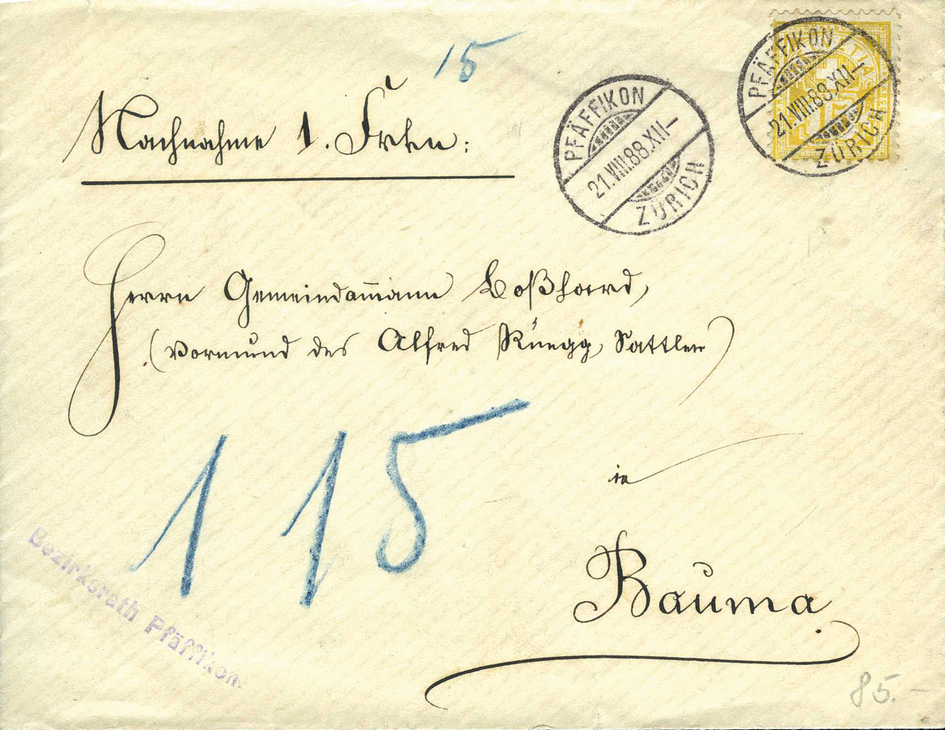 15
Nachnahme 1. Frkn:
PFÄFFIKON
21.VIII.88.XII–
ZÜRICH
PFÄFFIKON
21.VIII.88.XII–
ZÜRICH
Herrn Gemeindam̄ann Boßhard,
(Vormund des Alfred Rüegg, Sattler)
115
in
Bauma.
Bezirksrath Pfäffikon.
85.-